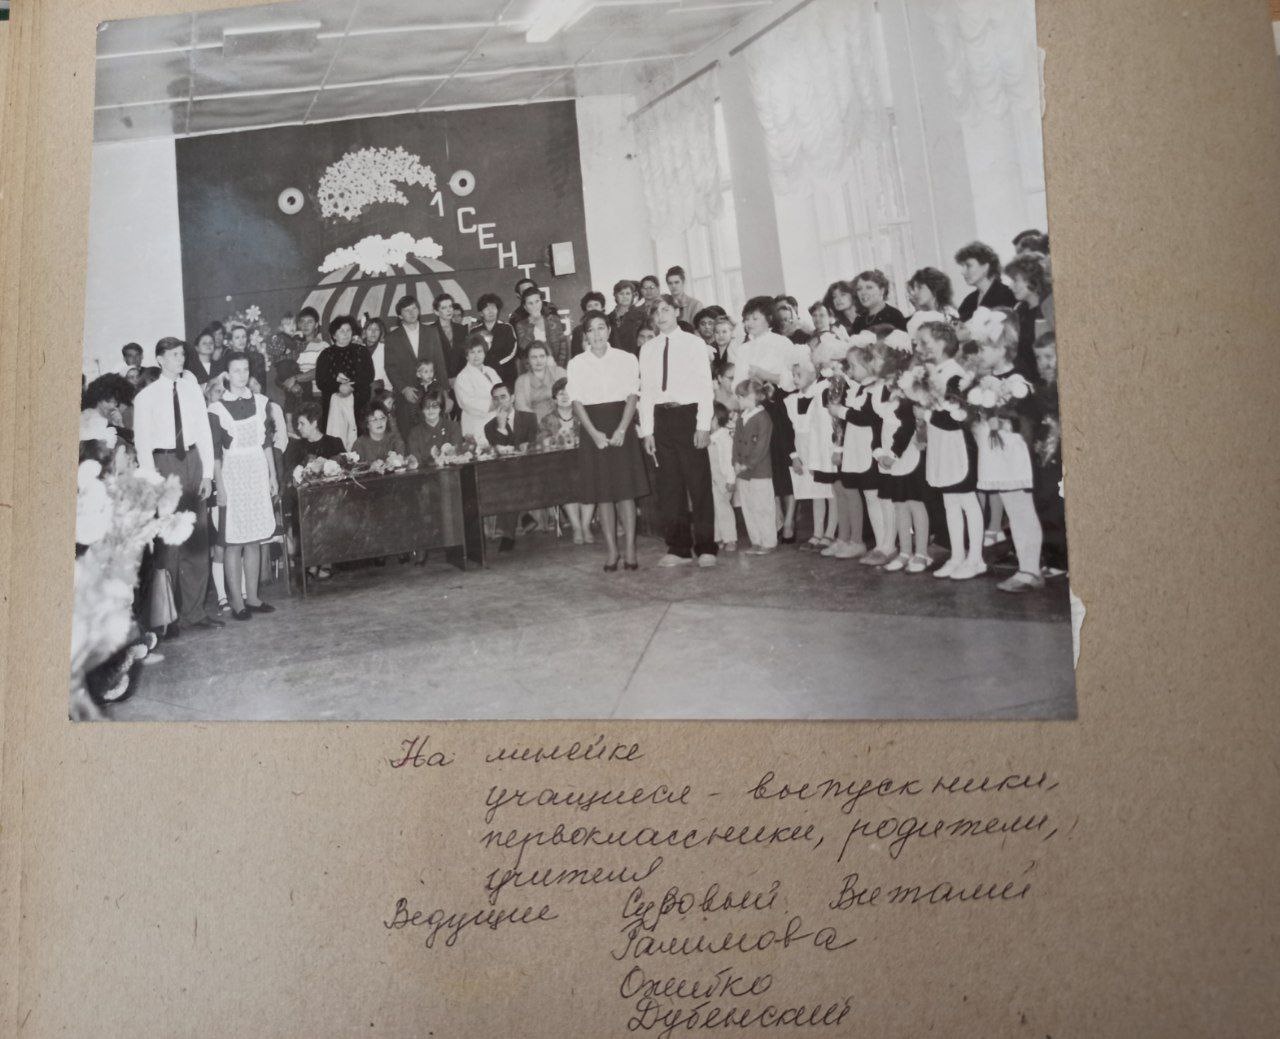 1 СЕНТ
На линейке
учащиеся - выпускники,
первоклассники, родители,
учителя
Ведущие Суровый Виталий
Галимова
Ошибко
Дубенский